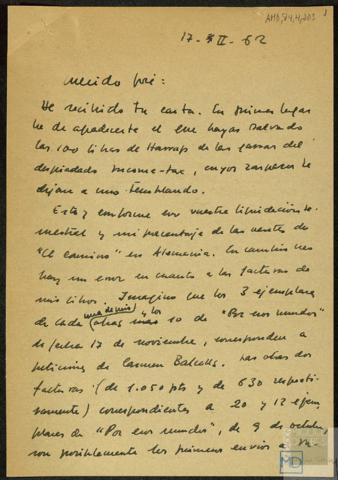 AMD,74,4,203
17-II-62
Querido José:
He recibido tu carta. En primer lugar
he de agradecerte el que hayas salvado
las 100 libras de Harrap de las garras del
despiadado income-tax, cuyos zarpazos le
dejan a uno temblando.
Estoy conforme con vuestra liquidación se-
mestral y mi porcentaje de las ventas de
"El camino" en Alemania. En cambio
hay un error en cuanto a las facturas de
mis libros. Imagino que los 3 ejemplares
de cada una de mis obras y los 10 de "Por esos mundos"
de fecha 17 de noviembre, corresponden a
peticiones de Carmen Balcells. Las otras dos
facturas (de 1.050 pts y de 630 respecti-
vamente) correspondientes a 20 y 12 ejem-
plares de "Por esos mundos", de 9 de octubre,
son posiblemente los primeros envíos a
MD